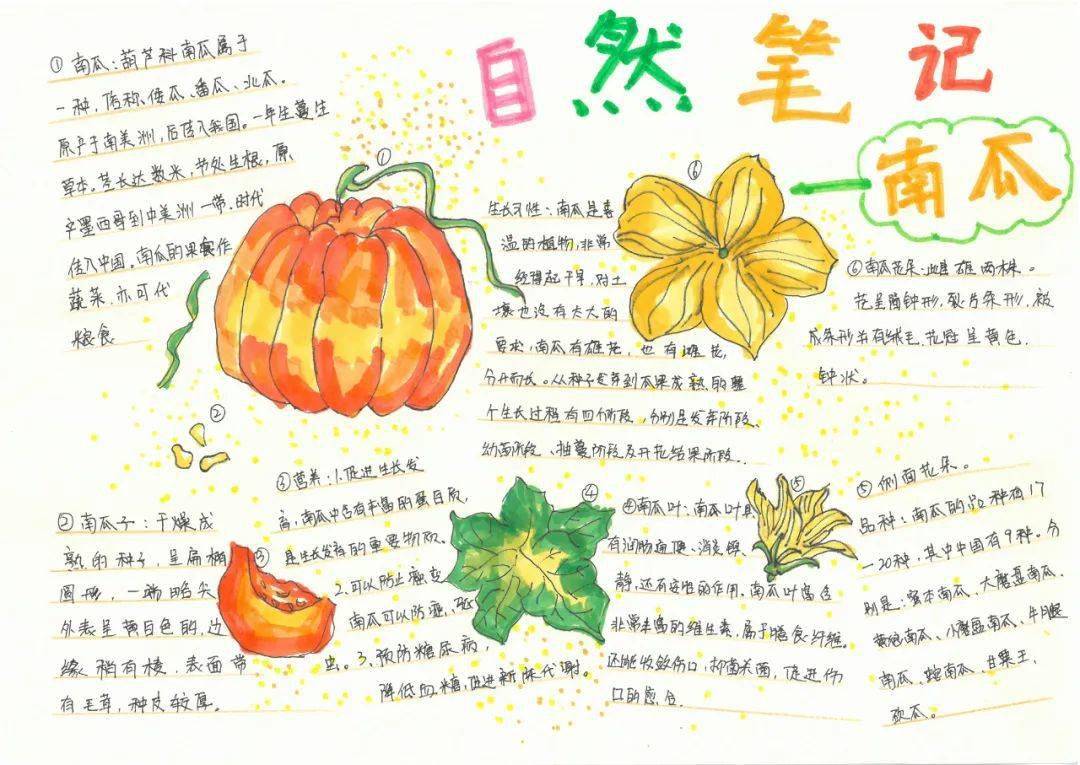 自然笔记
南瓜
①南瓜:葫芦科南瓜属于
一种,俗称倭瓜、番瓜、北瓜。
原产于南美洲,后传入我国。一年生蔓生
草本。茎长达数米,节处生根,原
辛墨西哥到中美洲一带,时代
传入中国。南瓜的果实作
蔬菜,亦可代
粮食
①
②
②南瓜子:干燥成
熟的种子,呈扁椭
圆形,一端略尖
外表呈黄白色的,边
缘稍有棱,表面带
有毛茸,种皮较厚。
③
③营养:1.促进生长发
育,南瓜中含有丰富的蛋白质,
是生长发育的重要物质。
2.可以防止癌变
南瓜可以防癌,
虫。3、预防糖尿病,
降低血糖,促进新陈代谢。
生长习性:南瓜是喜
温的植物,非常
经得起干旱,对土
壤也没有太大的
要求,南瓜有雄花,也有雌花,
分开而长。从种子发芽到瓜果成熟的整
个生长过程有四个阶段,分别是发芽阶段、
幼苗阶段、抽蔓阶段及开花结果阶段..
④
④南瓜叶:南瓜叶具
有润肠通便、消炎镇
静,还有定性的作用。南瓜叶富含
非常丰富的维生素,属于膳食纤维,
还能收敛伤口,抑菌杀菌,促进伤
口的愈合.
⑥
⑥南瓜花朵:雌雄两株。
花呈筒钟形,裂片条形,被
成条形并有绒毛,花冠呈黄色,
钟状。
⑤
⑤侧面花朵。
品种:南瓜的品种有17
-20种,其中中国有9种。分
别是:蜜本南瓜、大磨盘南瓜、
黄冠南瓜、小磨盘南瓜、牛腿
南瓜、蛇南瓜、甘栗王、
砍瓜。